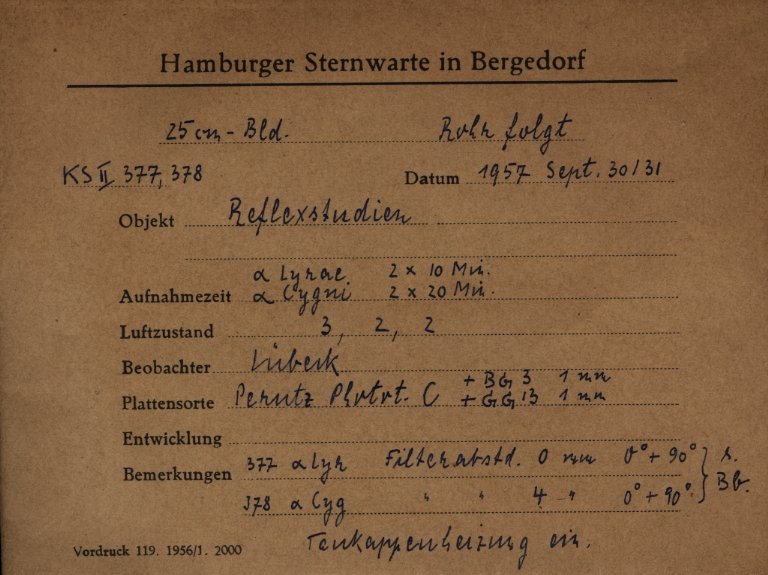 Hamburger Sternwarte in Bergedorf
25 cm - Bld. Rohr folgt
KS II 377, 378 Datum 1957 Sept. 30/31
Objekt Reflexstudien
α Lyrae 2 × 10 Min.
Aufnahmezeit α Cygni 2 × 20 Min.
Luftzustand 3, 2, 2
Beobachter Lübeck
+ BG 3 1 mm
Plattensorte Perutz Photot. C + GG 13 1 mm
Entwicklung
Bemerkungen 377 α Lyr Filterabstd. 0 mm 0° + 90° } s. Bb.
378 α Cyg " " 4 " 0° + 90°
Taukappenheizung ein.
Vordruck 119. 1956/1. 2000